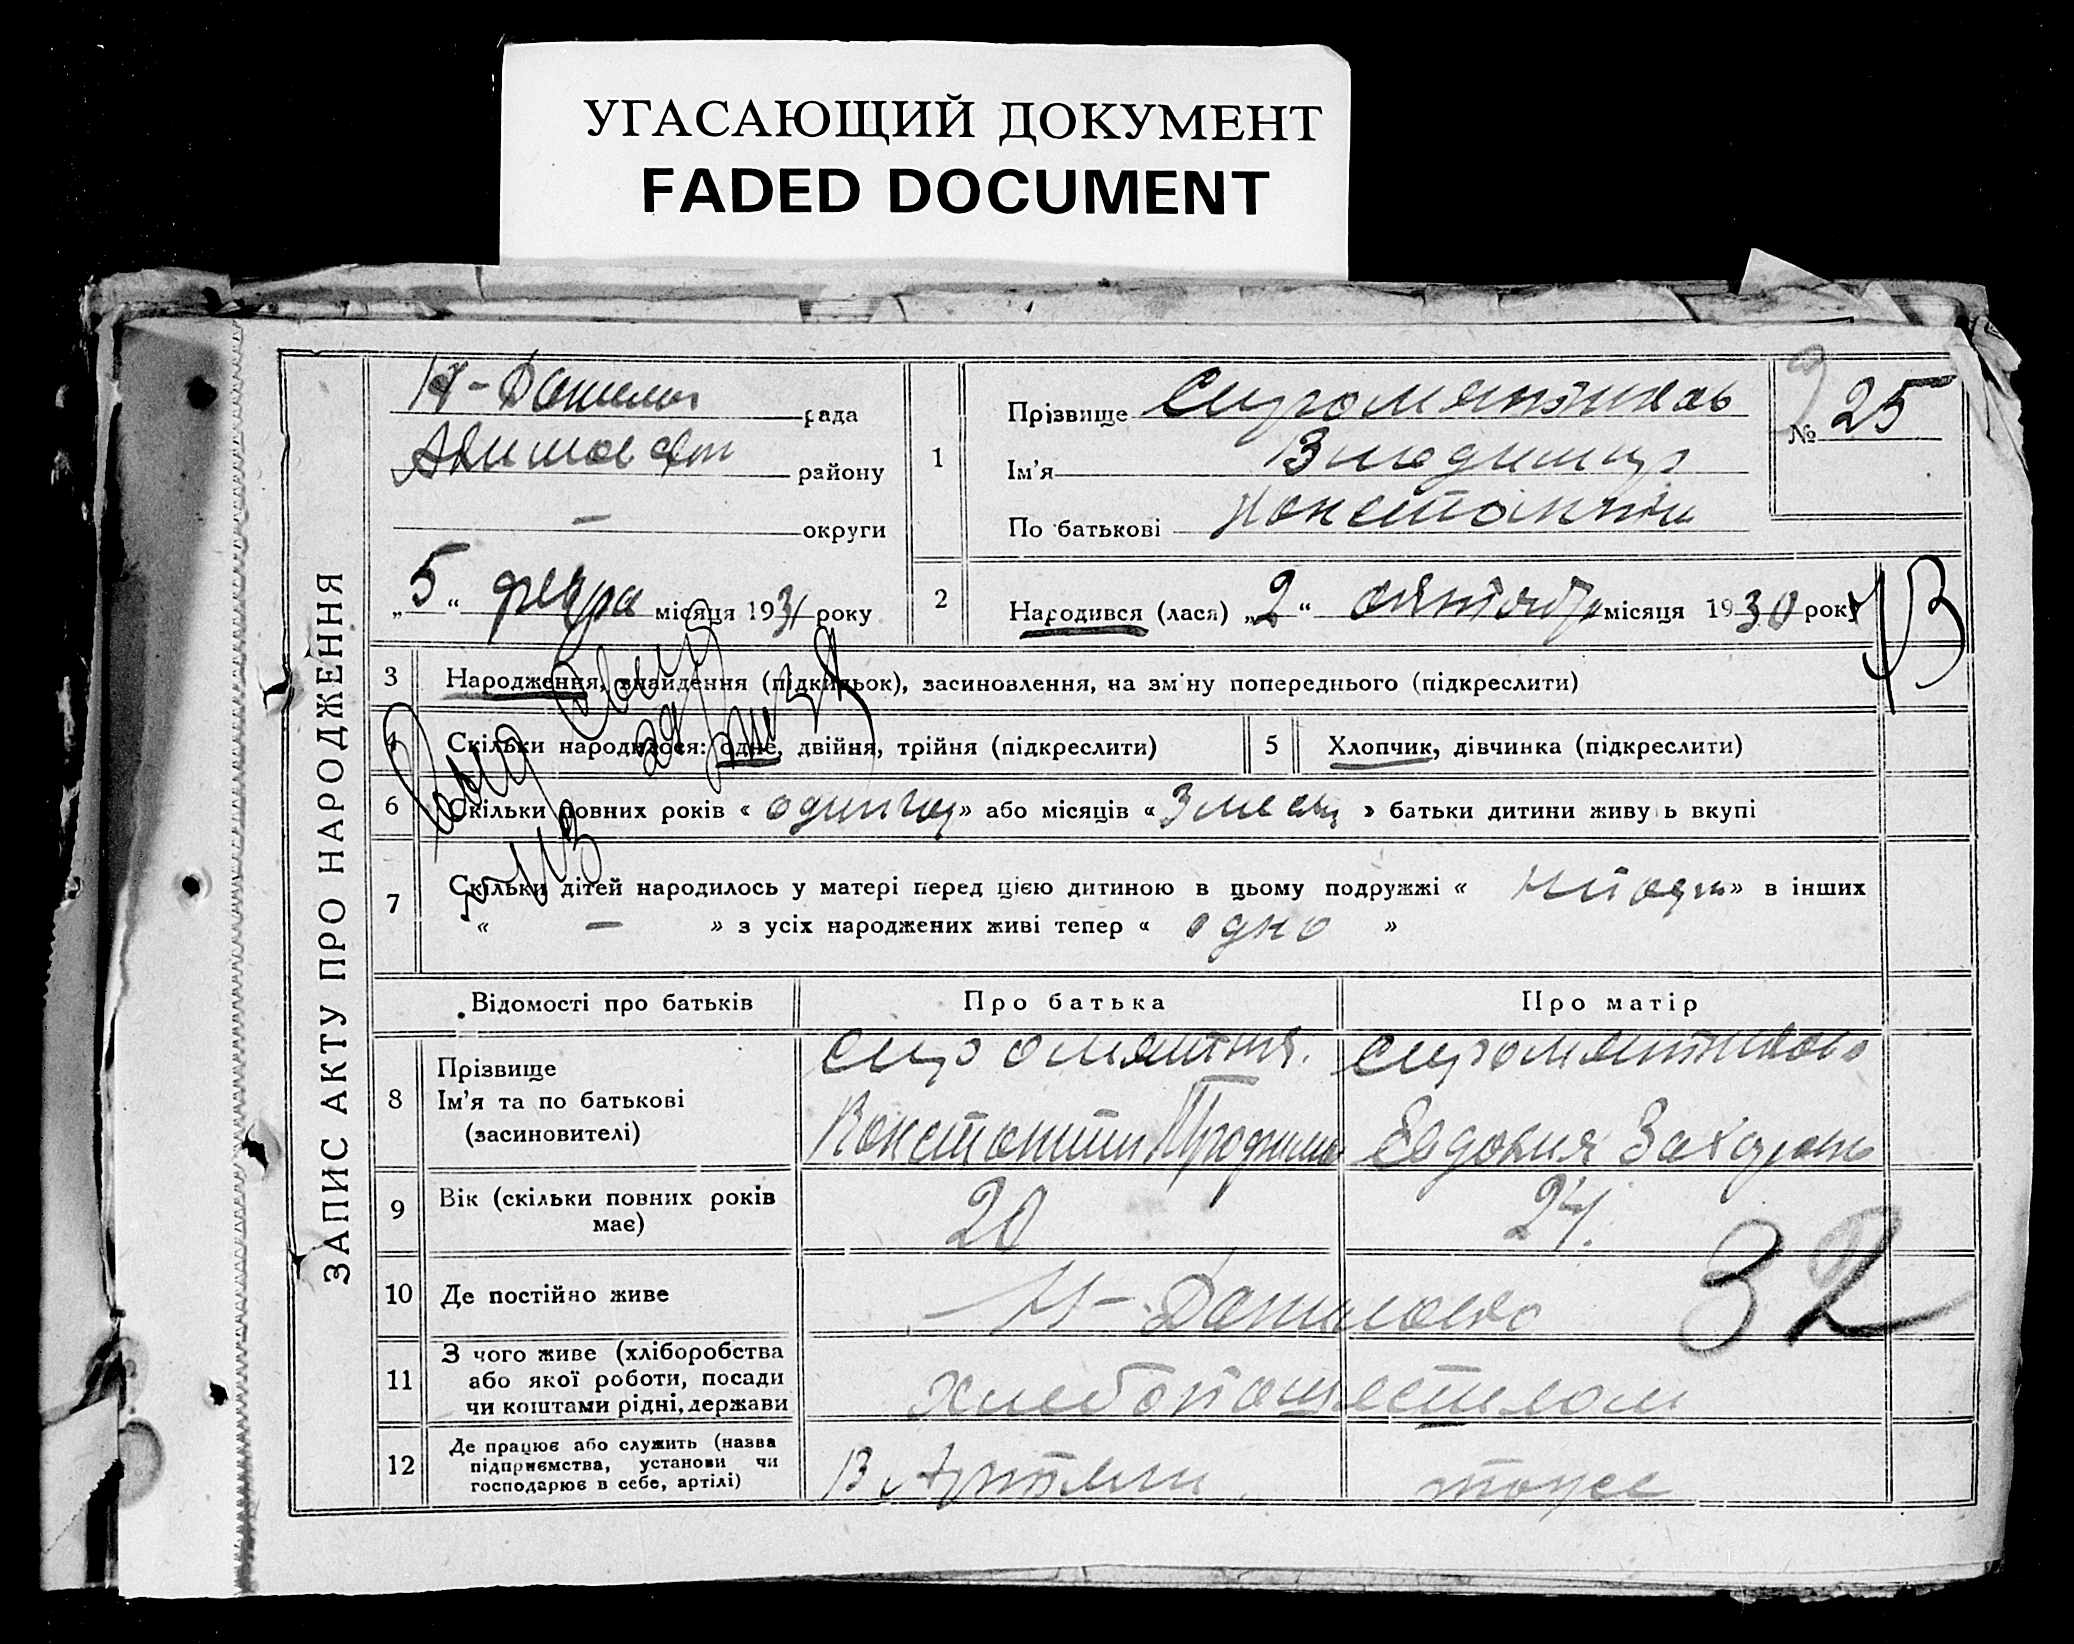 УГАСАЮЩИЙ ДОКУМЕНТ
FADED DOCUMENT
ЗАПИС АКТУ ПРО НАРОДЖЕННЯ
рада
району
— округи
„5“ февра місяця 1931 року
1
Прізвище Сыромятников
Ім'я Владимир
По батькові Константин
№ 25
2
Народився (лася) „2“ октября місяця 1930 року
3 Народження, знайдення (підкидьок), засиновлення, на зміну попереднього (підкреслити)
4 Скільки народилося: одне, двійня, трійня (підкреслити)
5 Хлопчик, дівчинка (підкреслити)
6 Скільки повних років « один год » або місяців « 3 месяц » батьки дитини живуть вкупі
7 Скільки дітей народилось у матері перед цією дитиною в цьому подружжі « » в інших
« — » з усіх народжених живі тепер « одно »
Відомості про батьків
Про батька
Про матір
8
Прізвище
Ім'я та по батькові
(засиновителі)
Сыромятник.
Константин Трофимо
Сыромятникова
Евдокия Захаровн
9 Вік (скільки повних років має)
20
24.
10 Де постійно живе
Н-Даниловка
32
11
З чого живе (хліборобства
або якої роботи, посади
чи коштами рідні, держави
хлебопашеством
12
Де працює або служить (назва
підприємства, установи чи
господарює в себе, артілі)
В Артели
тоже